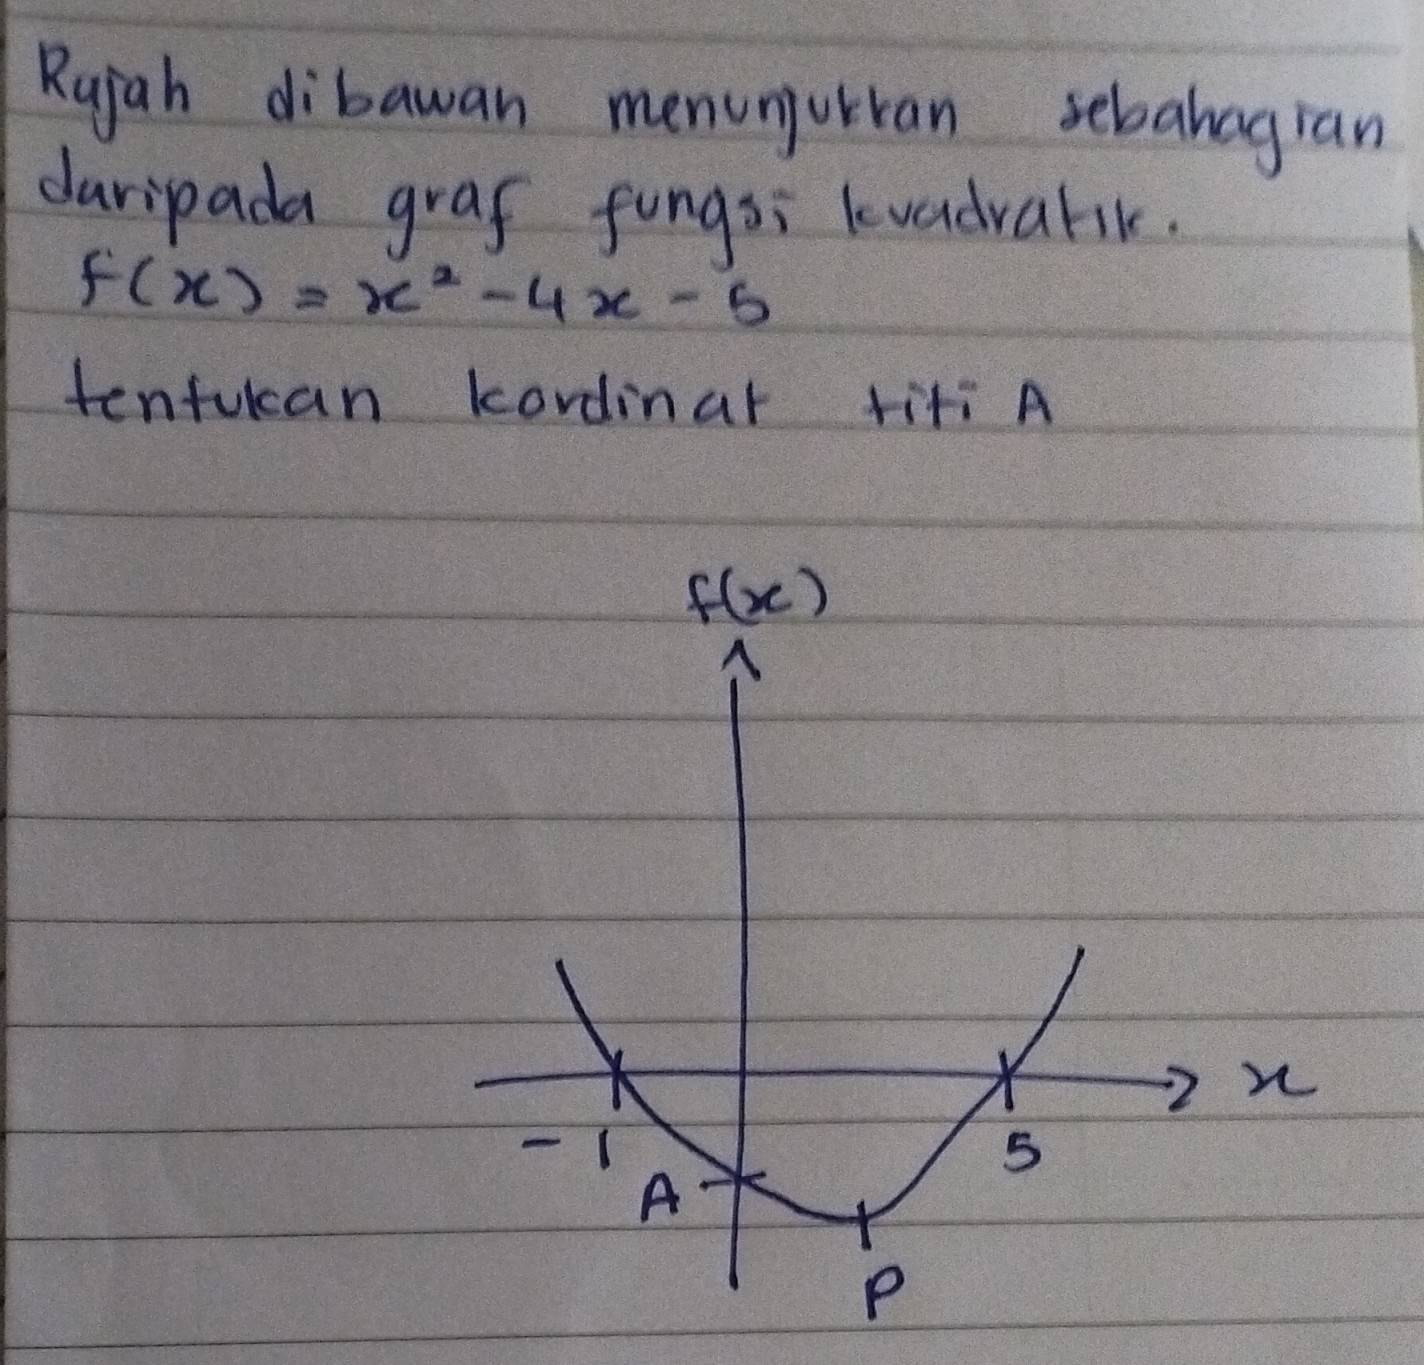 Rajah dibawah menunjukkan sebahagian
daripada graf fungsi kuadratik.
f(x) = x² - 4x - 5
tentukan kordinat titi A
f(x)
x
-1
5
A
P